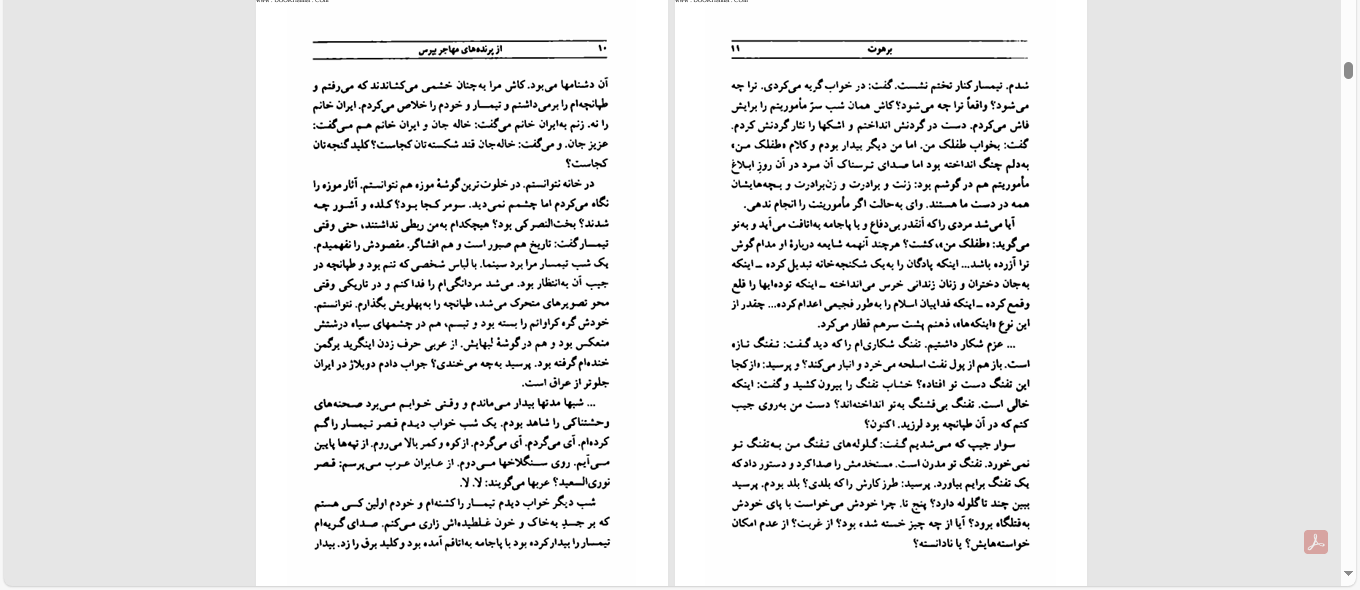 ۱۰ از پرنده‌های مهاجر بپرس
آن دشنامها می‌بود. کاش مرا به‌چنان خشمی می‌کشاندند که می‌رفتم و
طپانچه‌ام را برمی‌داشتم و تیمسار و خودم را خلاص می‌کردم. ایران خانم
را نه. زنم به‌ایران خانم می‌گفت: خاله جان و ایران خانم هم می‌گفت:
عزیز جان. و می‌گفت: خاله‌جان قند شکسته‌تان کجاست؟ کلید گنجه‌تان
کجاست؟
در خانه نتوانستم. در خلوت‌ترین گوشهٔ موزه هم نتوانستم. آثار موزه را
نگاه می‌کردم اما چشمم نمی‌دید. سومر کجا بود؟ کلده و آشور چه
شدند؟ بخت‌النصر کی بود؟ هیچکدام به‌من ربطی نداشتند، حتی وقتی
تیمسار گفت: تاریخ هم صبور است و هم افشاگر. مقصودش را نفهمیدم.
یک شب تیمسار مرا برد سینما. با لباس شخصی‌که تنم بود و طپانچه در
جیب آن به‌انتظار بود. می‌شد مردانگی‌ام را فدا کنم و در تاریکی وقتی
محو تصویرهای متحرک می‌شد، طپانچه را به‌پهلویش بگذارم. نتوانستم.
خودش گره کراواتم را بسته بود و تبسم، هم در چشمهای سیاه درشتش
منعکس بود و هم در گوشهٔ لبهایش. از عربی حرف زدن اینگرید برگمن
خنده‌ام گرفته بود. پرسید به‌چه می‌خندی؟ جواب دادم دوبلاژ در ایران
جلوتر از عراق است.
... شبها مدتها بیدار می‌ماندم و وقتی خوابم می‌برد صحنه‌های
وحشتناکی را شاهد بودم. یک شب خواب دیدم قصر تیمسار را گم
کرده‌ام. آی می‌گردم. آی می‌گردم. از کوه و کمر بالا می‌روم. از تپه‌ها پایین
می‌آیم. روی سنگلاخها می‌دوم. از عابران عرب می‌پرسم: قصر
نوری‌السعید؟ عربها می‌گویند: لا. لا.
شب دیگر خواب دیدم تیمسار را کشته‌ام و خودم اولین کسی هستم
که بر جسدِ به‌خاک و خون غلطیده‌اش زاری می‌کنم. صدای گریه‌ام
تیمسار را بیدار کرده بود با پاجامه به‌اتاقم آمده بود و کلید برق را زد. بیدار
برهوت ۱۱
شدم. تیمسار کنار تختم نشست. گفت: در خواب گریه می‌کردی. ترا چه
می‌شود؟ واقعاً ترا چه می‌شود؟ کاش همان شب سرّ مأموریتم را برایش
فاش می‌کردم. دست در گردنش انداختم و اشکها را نثار گردنش کردم.
گفت: بخواب طفلک من. اما من دیگر بیدار بودم و کلام «طفلک من»
به‌دلم چنگ انداخته بود اما صدای ترسناک آن مرد در آن روزِ ابلاغ
مأموریتم هم در گوشم بود: زنت و برادرت و زن‌برادرت و بچه‌هایشان
همه در دست ما هستند. وای به‌حالت اگر مأموریتت را انجام ندهی.
آیا می‌شد مردی را که آنقدر بی‌دفاع و با پاجامه به‌اتاقت می‌آید و به‌تو
می‌گوید: «طفلک من»، کشت؟ هرچند آنهمه شایعه دربارهٔ او مدام گوش
ترا آزرده باشد... اینکه پادگان را به‌یک شکنجه‌خانه تبدیل کرده ـ اینکه
به‌جان دختران و زنان زندانی خرس می‌انداخته ـ اینکه توده‌ایها را قلع
وقمع کرده ـ اینکه فداییان اسلام را به‌طور فجیعی اعدام کرده... چقدر از
این نوع «اینکه‌ها»، ذهنم پشت سرهم قطار می‌کرد.
... عزم شکار داشتیم. تفنگ شکاری‌ام را که دید گفت: تفنگ تازه
است. باز هم از پول نفت اسلحه می‌خرد و انبار می‌کند؟ و پرسید: «از کجا
این تفنگ دست تو افتاده؟ خشاب تفنگ را بیرون کشید و گفت: اینکه
خالی است. تفنگ بی‌فشنگ به‌تو انداخته‌اند؟ دست من به‌روی جیب
کتم که در آن طپانچه بود لرزید. اکنون؟
سوار جیپ که می‌شدیم گفت: گلوله‌های تفنگ من به‌تفنگ تو
نمی‌خورد. تفنگ تو مدرن است. مستخدمش را صدا کرد و دستور داد که
یک تفنگ برایم بیاورد. پرسید: طرز کارش را که بلدی؟ بلد بودم. پرسید
ببین چند تا گلوله دارد؟ پنج تا. چرا خودش می‌خواست با پای خودش
به‌قتلگاه برود؟ آیا از چه چیز خسته شده، بود؟ از غربت؟ از عدم امکان
خواسته‌هایش؟ یا نادانسته؟